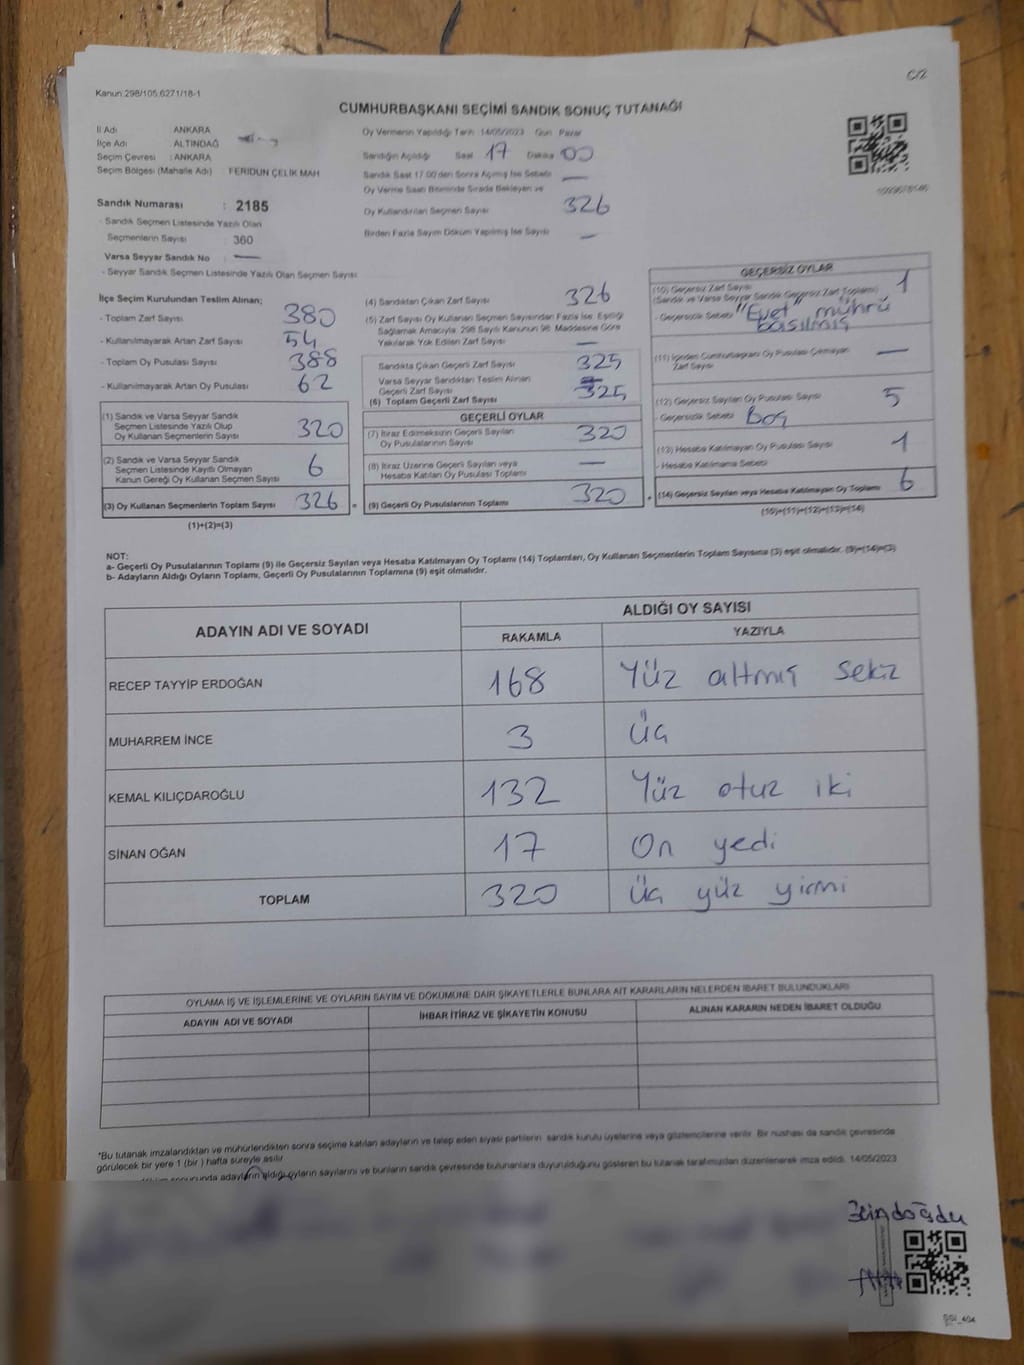 C/2
Kanun:298/105.6271/18-1
CUMHURBAŞKANI SEÇİMİ SANDIK SONUÇ TUTANAĞI
İl Adı ANKARA
İlçe Adı ALTINDAĞ
Seçim Çevresi : ANKARA
Seçim Bölgesi (Mahalle Adı) FERİDUN ÇELİK MAH
Oy Vermenin Yapıldığı Tarih 14/05/2023 Gün Pazar
Sandığın Açıldığı Saat 17 Dakika 00
Sandık Saat 17.00'den Sonra Açılmış İse Sebebi —
Oy Verme Saati Bitiminde Sırada Bekleyen ve
Oy Kullandırılan Seçmen Sayısı 326
Birden Fazla Sayım Döküm Yapılmış İse Sayısı —
Sandık Numarası : 2185
- Sandık Seçmen Listesinde Yazılı Olan
Seçmenlerin Sayısı : 360
Varsa Seyyar Sandık No : —
- Seyyar Sandık Seçmen Listesinde Yazılı Olan Seçmen Sayısı
İlçe Seçim Kurulundan Teslim Alınan;
- Toplam Zarf Sayısı 380
- Kullanılmayarak Artan Zarf Sayısı 54
- Toplam Oy Pusulası Sayısı 388
- Kullanılmayarak Artan Oy Pusulası 62
(1) Sandık ve Varsa Seyyar Sandık
Seçmen Listesinde Yazılı Olup
Oy Kullanan Seçmenlerin Sayısı 320
(2) Sandık ve Varsa Seyyar Sandık
Seçmen Listesinde Kayıtlı Olmayan
Kanun Gereği Oy Kullanan Seçmen Sayısı 6
(3) Oy Kullanan Seçmenlerin Toplam Sayısı 326 =
(1)+(2)=(3)
(4) Sandıktan Çıkan Zarf Sayısı 326
(5) Zarf Sayısı Oy Kullanan Seçmen Sayısından Fazla İse, Eşitliği
Sağlamak Amacıyla; 298 Sayılı Kanunun 98. Maddesine Göre
Yakılarak Yok Edilen Zarf Sayısı —
Sandıkta Çıkan Geçerli Zarf Sayısı 325
Varsa Seyyar Sandıktan Teslim Alınan
Geçerli Zarf Sayısı
(6) Toplam Geçerli Zarf Sayısı 325
GEÇERLİ OYLAR
(7) İtiraz Edilmeksizin Geçerli Sayılan
Oy Pusulalarının Sayısı 320
(8) İtiraz Üzerine Geçerli Sayılan veya
Hesaba Katılan Oy Pusulası Toplamı —
(9) Geçerli Oy Pusulalarının Toplamı 320 +
GEÇERSİZ OYLAR
(10) Geçersiz Zarf Sayısı 1
(Sandık ve Varsa Seyyar Sandık Geçersiz Zarf Toplamı)
- Geçersizlik Sebebi "Evet" mührü
basılmış
(11) İçinden Cumhurbaşkanı Oy Pusulası Çıkmayan
Zarf Sayısı —
(12) Geçersiz Sayılan Oy Pusulası Sayısı 5
- Geçersizlik Sebebi Boş
(13) Hesaba Katılmayan Oy Pusulası Sayısı 1
- Hesaba Katılmama Sebebi
(14) Geçersiz Sayılan veya Hesaba Katılmayan Oy Toplamı 6
(10)+(11)+(12)+(13)=(14)
NOT:
a- Geçerli Oy Pusulalarının Toplamı (9) ile Geçersiz Sayılan veya Hesaba Katılmayan Oy Toplamı (14) Toplamları, Oy Kullanan Seçmenlerin Toplam Sayısına (3) eşit olmalıdır. (9)+(14)=(3)
b- Adayların Aldığı Oyların Toplamı, Geçerli Oy Pusulalarının Toplamına (9) eşit olmalıdır.
ADAYIN ADI VE SOYADI ALDIĞI OY SAYISI
RAKAMLA YAZIYLA
RECEP TAYYİP ERDOĞAN 168 Yüz altmış sekiz
MUHARREM İNCE 3 Üç
KEMAL KILIÇDAROĞLU 132 Yüz otuz iki
SİNAN OĞAN 17 On yedi
TOPLAM 320 Üç yüz yirmi
OYLAMA İŞ VE İŞLEMLERİNE VE OYLARIN SAYIM VE DÖKÜMÜNE DAİR ŞİKAYETLERLE BUNLARA AİT KARARLARIN NELERDEN İBARET BULUNDUKLARI
ADAYIN ADI VE SOYADI İHBAR İTİRAZ VE ŞİKAYETİN KONUSU ALINAN KARARIN NEDEN İBARET OLDUĞU
*Bu tutanak imzalandıktan ve mühürlendikten sonra seçime katılan adayların ve talep eden siyasi partilerin sandık kurulu üyelerine veya gözlemcilerine verilir. Bir nüshası da sandık çevresinde
görülecek bir yere 1 (bir ) hafta süreyle asılır.
sonucunda adayların aldığı oyların sayılarını ve bunların sandık çevresinde bulunanlara duyurulduğunu gösteren bu tutanak tarafımızdan düzenlenerek imza edildi. 14/05/2023